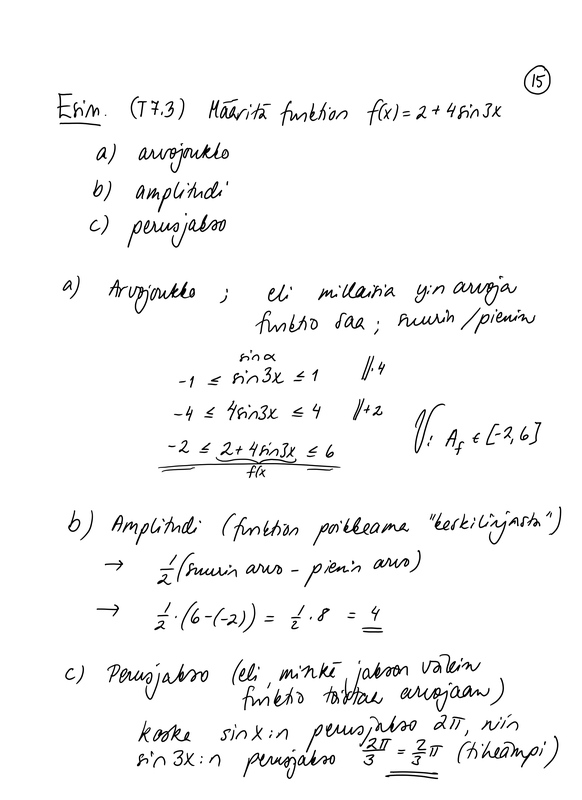 15
Esim. (T7.3) Määritä funktion f(x) = 2 + 4sin3x
a) arvojoukko
b) amplitudi
c) perusjakso
a) Arvojoukko ; eli millaisia y:n arvoja
funktio saa ; suurin / pienin
sin α
-1 ≤ sin3x ≤ 1 ||·4
-4 ≤ 4sin3x ≤ 4 ||+2
-2 ≤ 2+4sin3x ≤ 6
f(x
V: A_f ∈ [-2,6]
b) Amplitudi (funktion poikkeama "keskilinjasta")
→ 1/2 (suurin arvo - pienin arvo)
→ 1/2 · (6-(-2)) = 1/2 · 8 = 4
c) Perusjakso (eli, minkä jakson välein
funktio toistaa arvojaan)
koska sin x:n perusjakso 2π, niin
sin 3x:n perusjakso 2π/3 = 2/3 π (tiheämpi)